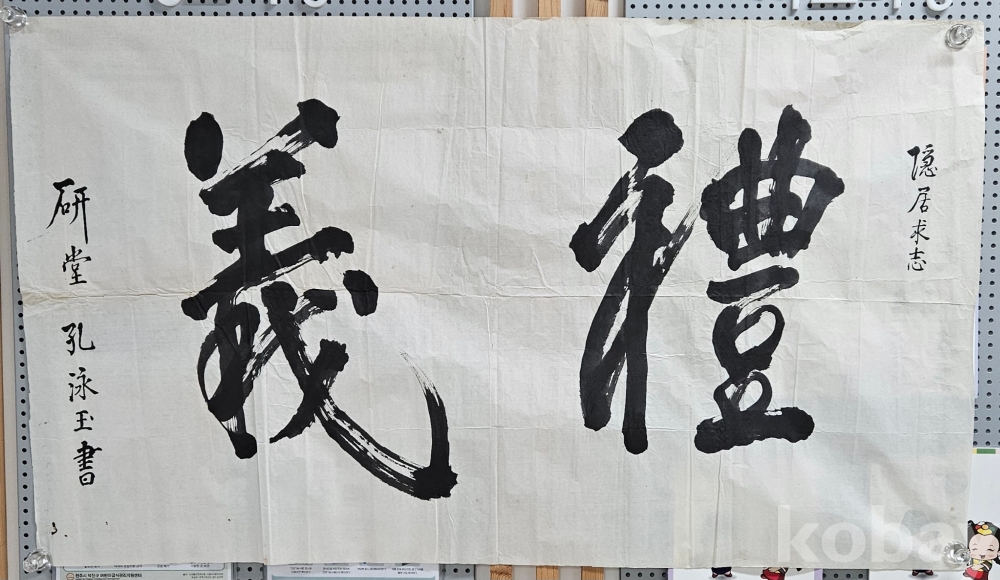 隱居求志
禮義
研堂 孔泳玉書
koba